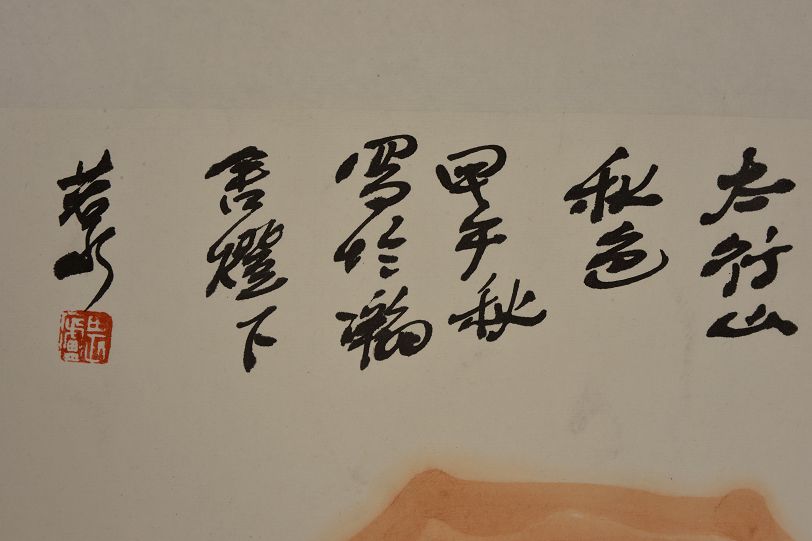 太行山
秋色
甲午秋
写于瀚
香灯下
若水